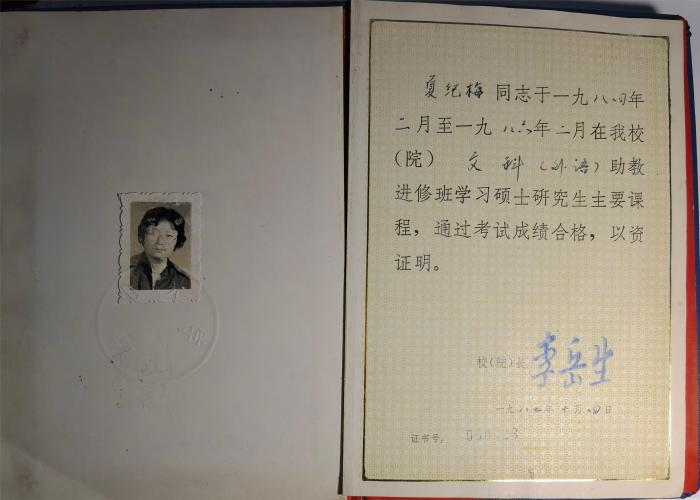 夏纪梅 同志于一九八四年
二月至一九八六年二月在我校
(院) 文科(外语)助教
进修班学习硕士研究生主要课
程,通过考试成绩合格,以资
证明。
校(院)长 李岳生
一九八七年十月四日
证书号: